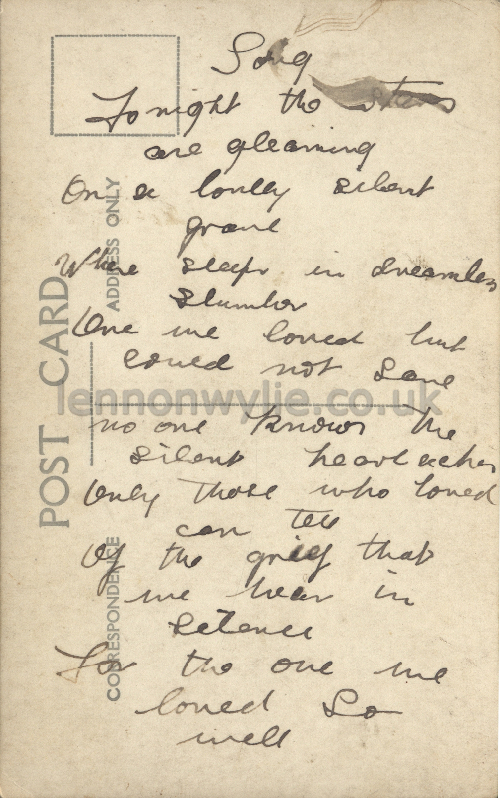 Song
To night the stars
are gleaming
On a lonely silent
grave
Where sleeps in dreamless
slumber
One we loved but
could not save
no one knows the
silent heart aches
Only those who loved
can tell
Of the grief that
we bear in
silence
For the one we
loved so
well
POST CARD
ADDRESS ONLY
CORRESPONDENCE
lennonwylie.co.uk